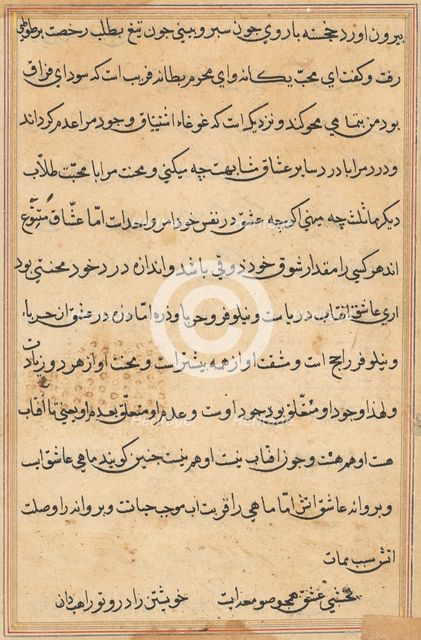 بیرون اورد خجسته با روی چون سپر و بینی چون تیغ بطلب رخصت بر طوطی
رفت و کفت ای محب یکانه و ای محرم بطانه قریب است که سودای فراق
بود من بتمامی محو کند و نزدیک است که غوغاء اشتیاق وجود مرا عدم کرداند
و درد مرا با درد سایر عشاق مشابهت چه میکنی و محنت مرا با محبت طلاب
دیکر مماثلت چه میدهی اکرچه عشق در نفس خود امر واحد است اما عشاق متنوع
اند هر کسی را مقدار شوق خود ذوقی باشد و اندازه درد خود محنتی بود
اری عاشق افتاب دریاست و نیلوفر و حربا و ذره اما ذره در عشق از حربا
و نیلوفر راجح است و مشقت او از همه بیشتر است و محنت او از هر دو زیادت
و لهذا وجود او متعلق بوجود اوست و عدم او متعلق بعدم او یعنی تا افتاب
هست او هم هست و چون افتاب نیست او هم نیست چنین کویند ماهی عاشق ابست
و پروانه عاشق اتش اما ماهی را قربت اب موجب حیات و پروانه را وصلت
اتش سبب ممات
نخشبی عشق همچو معدایت خویشتن را درو تو راهبدان
Heritage